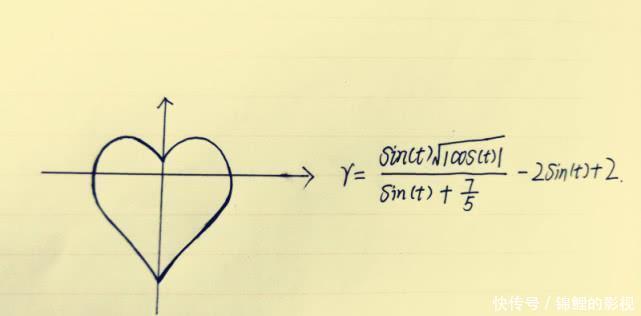 r = \frac{sin(t)\sqrt{|cos(t)|}}{sin(t) + \frac{7}{5}} - 2sin(t) + 2.
快传号 / 锦鲤的影视